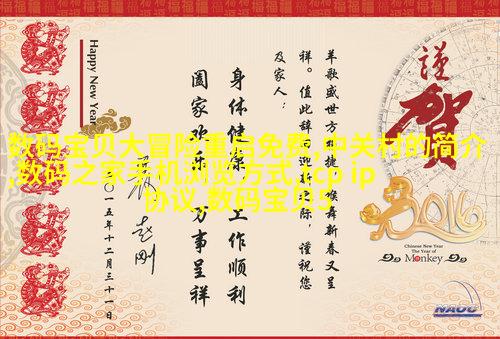 数码宝贝大冒险重启免费,中关村的简介
,数码之家手机浏览方式,tcp ip
协议,数码宝贝5
謹
賀
2016
Chinese New Year
The Year of
Monkey
NAOC
羊歌盛世方报捷,猴舞新春又呈
祥。值此辞旧迎新之际,谨祝您
及家人:
身体健康 工作顺利
阖家欢乐 万事呈祥
赵刚
〇一五年十二月三十一日
Happy New Year